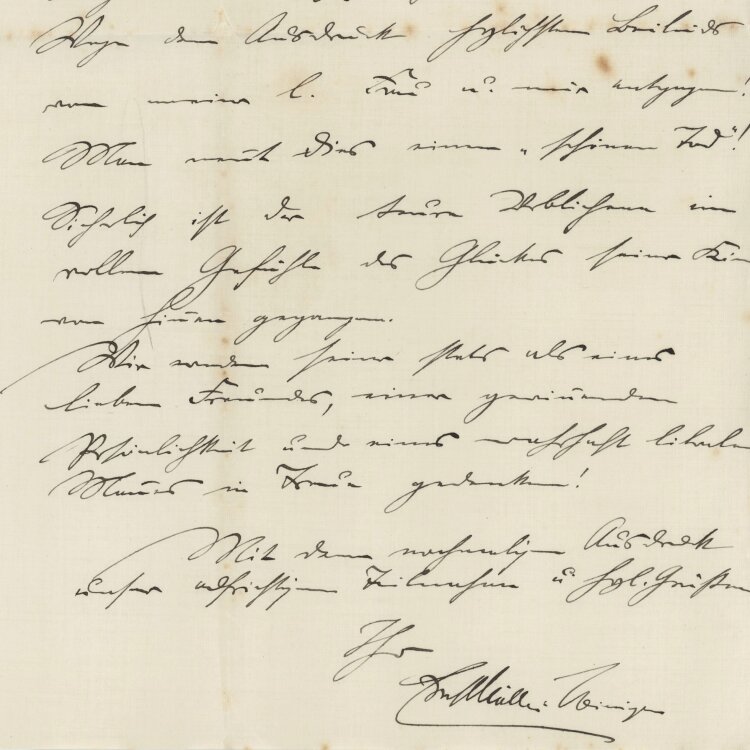 Wege den Ausdruck hzlichsten Beileids
von meiner l. Frau u. mir entgegen!
Man nennt dies einen „schönen Tod"!
Sicherlich ist der teure Verblichene im
vollen Gefühle des Glückes seiner Kin
von hinnen gegangen.
Wir werden seiner stets als eines
lieben Freundes, einer gewinnenden
Persönlichkeit und eines wahrhaft liberalen
Mannes in Treue gedenken!
Mit dem nochmaligen Ausdruck
unsrer aufrichtigen Teilnahme u. hzl. Grüßen
Ihr
Müller Meiningen